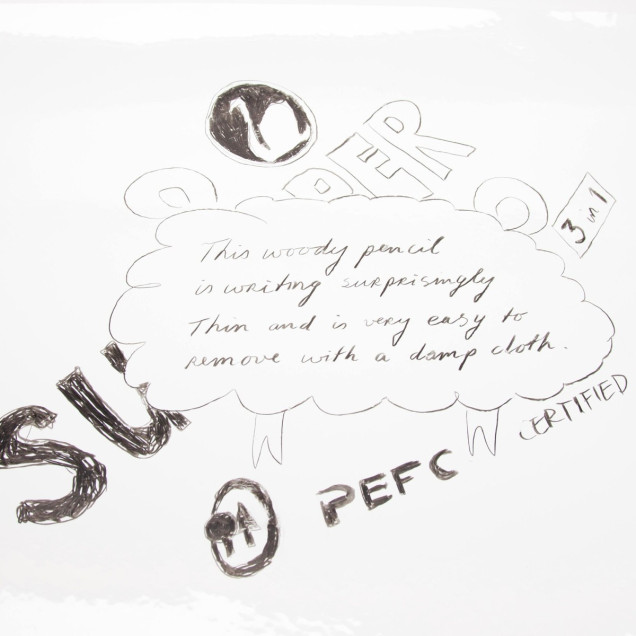 PER
3 in 1
This woody pencil
is writing surprisingly
Thin and is very easy to
remove with a damp cloth.
SU
CERTIFIED
PEFC